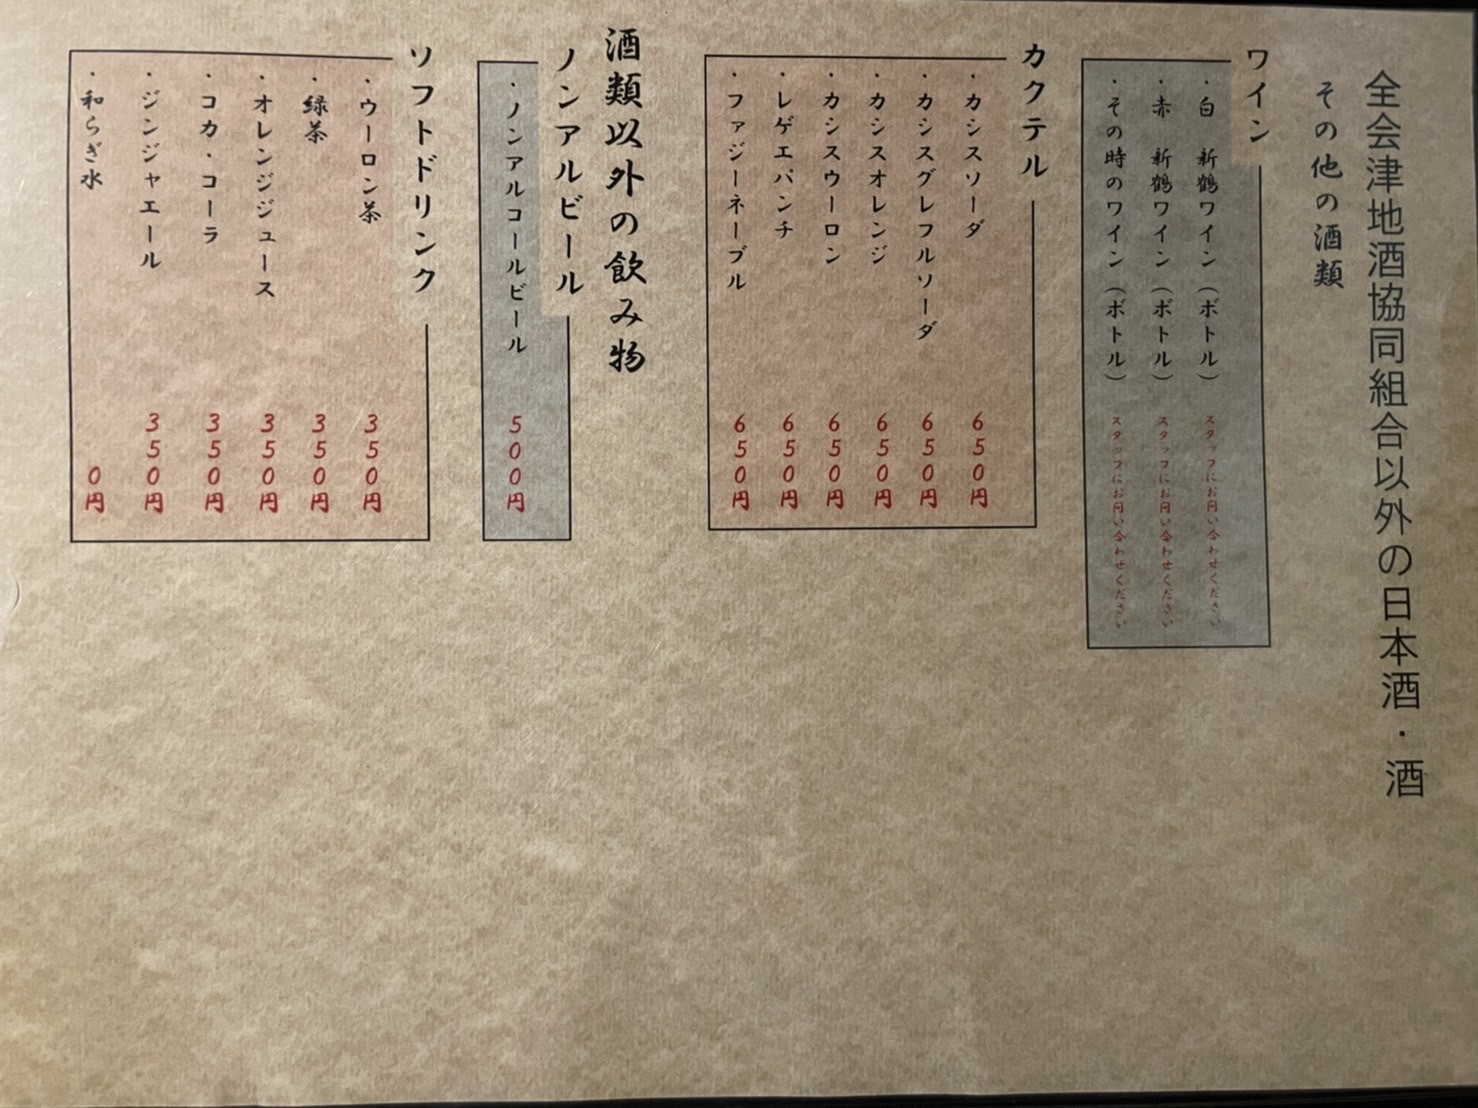 全会津地酒協同組合以外の日本酒・酒
その他の酒類
ワイン
・白 新鶴ワイン（ボトル） スタッフにお問い合わせください
・赤 新鶴ワイン（ボトル） スタッフにお問い合わせください
・その時のワイン（ボトル） スタッフにお問い合わせください
カクテル
・カシスソーダ 650円
・カシスグレフルソーダ 650円
・カシスオレンジ 650円
・カシスウーロン 650円
・レゲエパンチ 650円
・ファジーネーブル 650円
酒類以外の飲み物
ノンアルビール
・ノンアルコールビール 500円
ソフトドリンク
・ウーロン茶 350円
・緑茶 350円
・オレンジジュース 350円
・コカ・コーラ 350円
・ジンジャエール 350円
・和らぎ水 0円